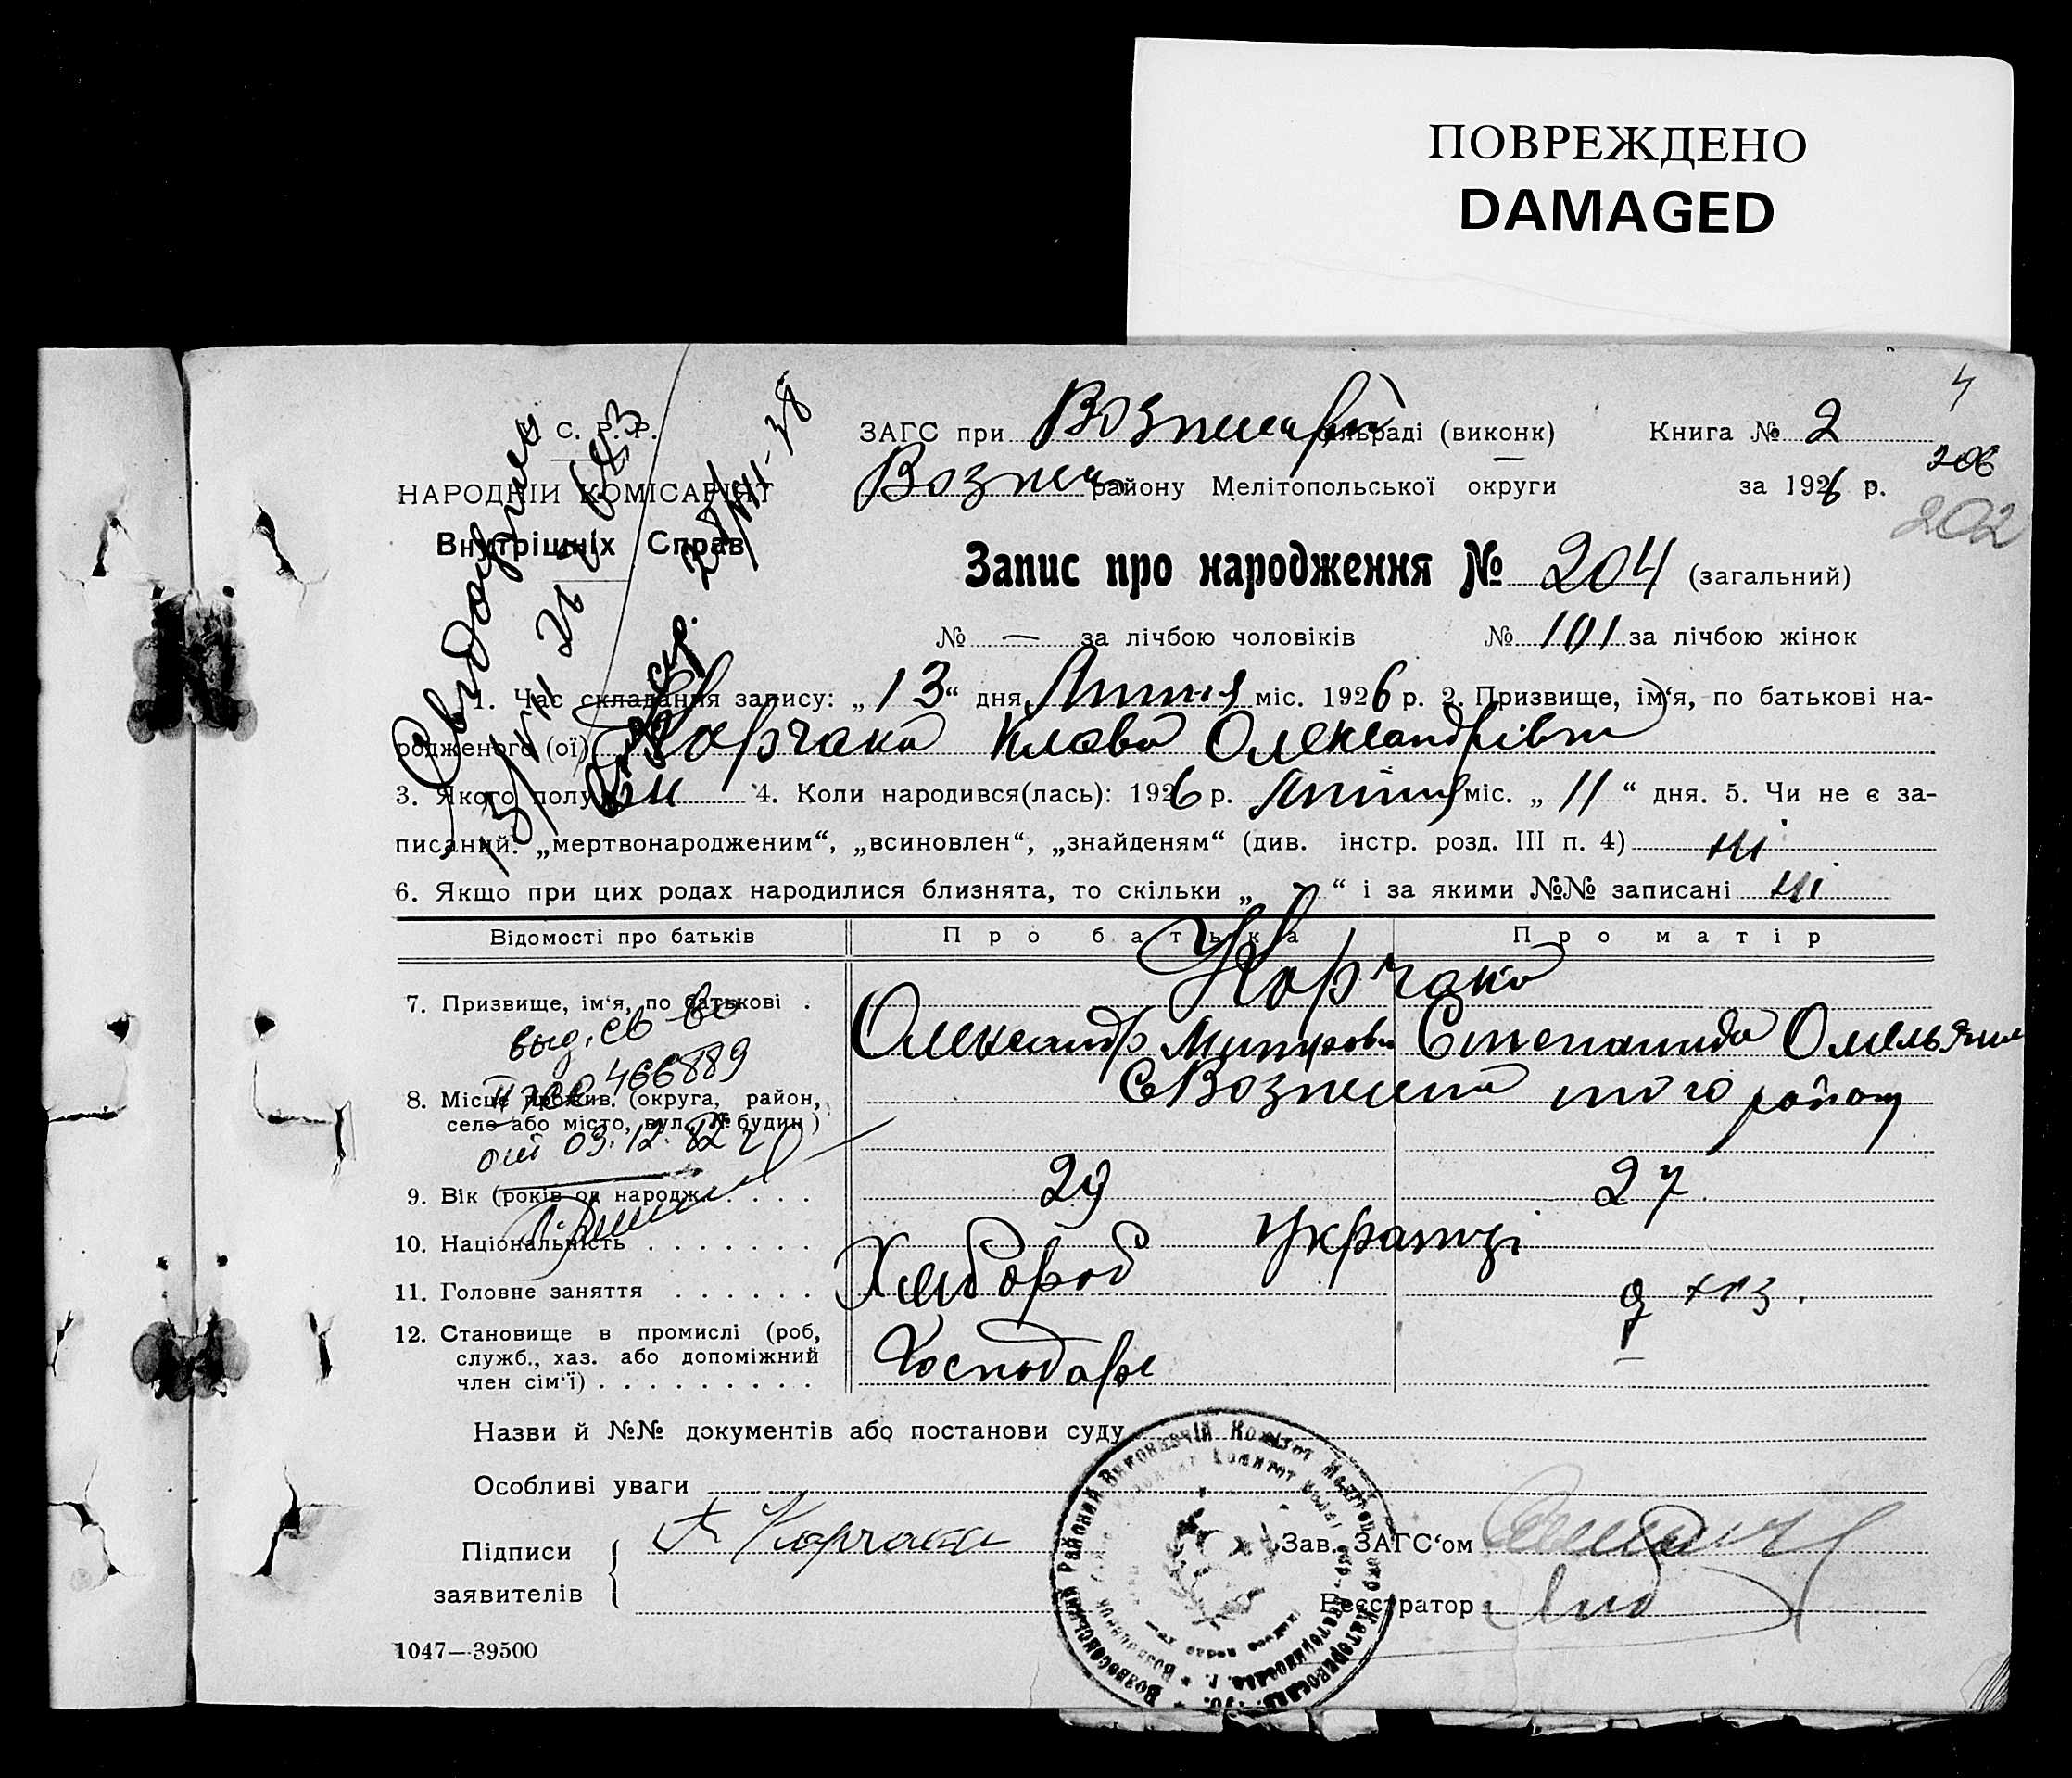 ПОВРЕЖДЕНО
DAMAGED
4
С. Р. Р.
ЗАГС при сільраді (виконк) Книга № 2
206
НАРОДНІЙ КОМІСАРІЯТ
Вознес району Мелітопольської округи за 1926 р.
202
Внутрішніх Справ
28/VIII-38
Запис про народження № 204 (загальний)
№ — за лічбою чоловіків № 101 за лічбою жінок
1. Час складання запису: „13“ дня Липня міс. 1926 р. 2. Призвище, ім‘я, по батькові на-
родженого (ої) Корчака Клава Олександрівна
3. Якого полу 4. Коли народився(лась): 1926 р. Липня міс. „11“ дня. 5. Чи не є за-
писаний: „мертвонародженим“, „всиновлен“, „знайденям“ (див. інстр. розд. III п. 4) ні
6. Якщо при цих родах народилися близнята, то скільки „ “ і за якими №№ записані ні
Відомості про батьків Про батька Про матір
Корчака
7. Призвище, ім‘я, по батькові .
выд. св-во
Олександр Степанида
466889
8. Місце прожив. (округа, район,
село або місто, вул. № будин)
того району
от 03.12.82 г
9. Вік (років од народж. . . . . 29 27
10. Національність . . . . . . . Українці
11. Головне заняття . . . . . . Хлібороб
12. Становище в промислі (роб,
служб., хаз. або допоміжний
член сім‘ї) . . . . . . . . . Господарь —
Назви й №№ документів або постанови суду
Особливі уваги
Підписи
заявителів
Корчака
Зав. ЗАГС‘ом
Реєстратор
1047—39500